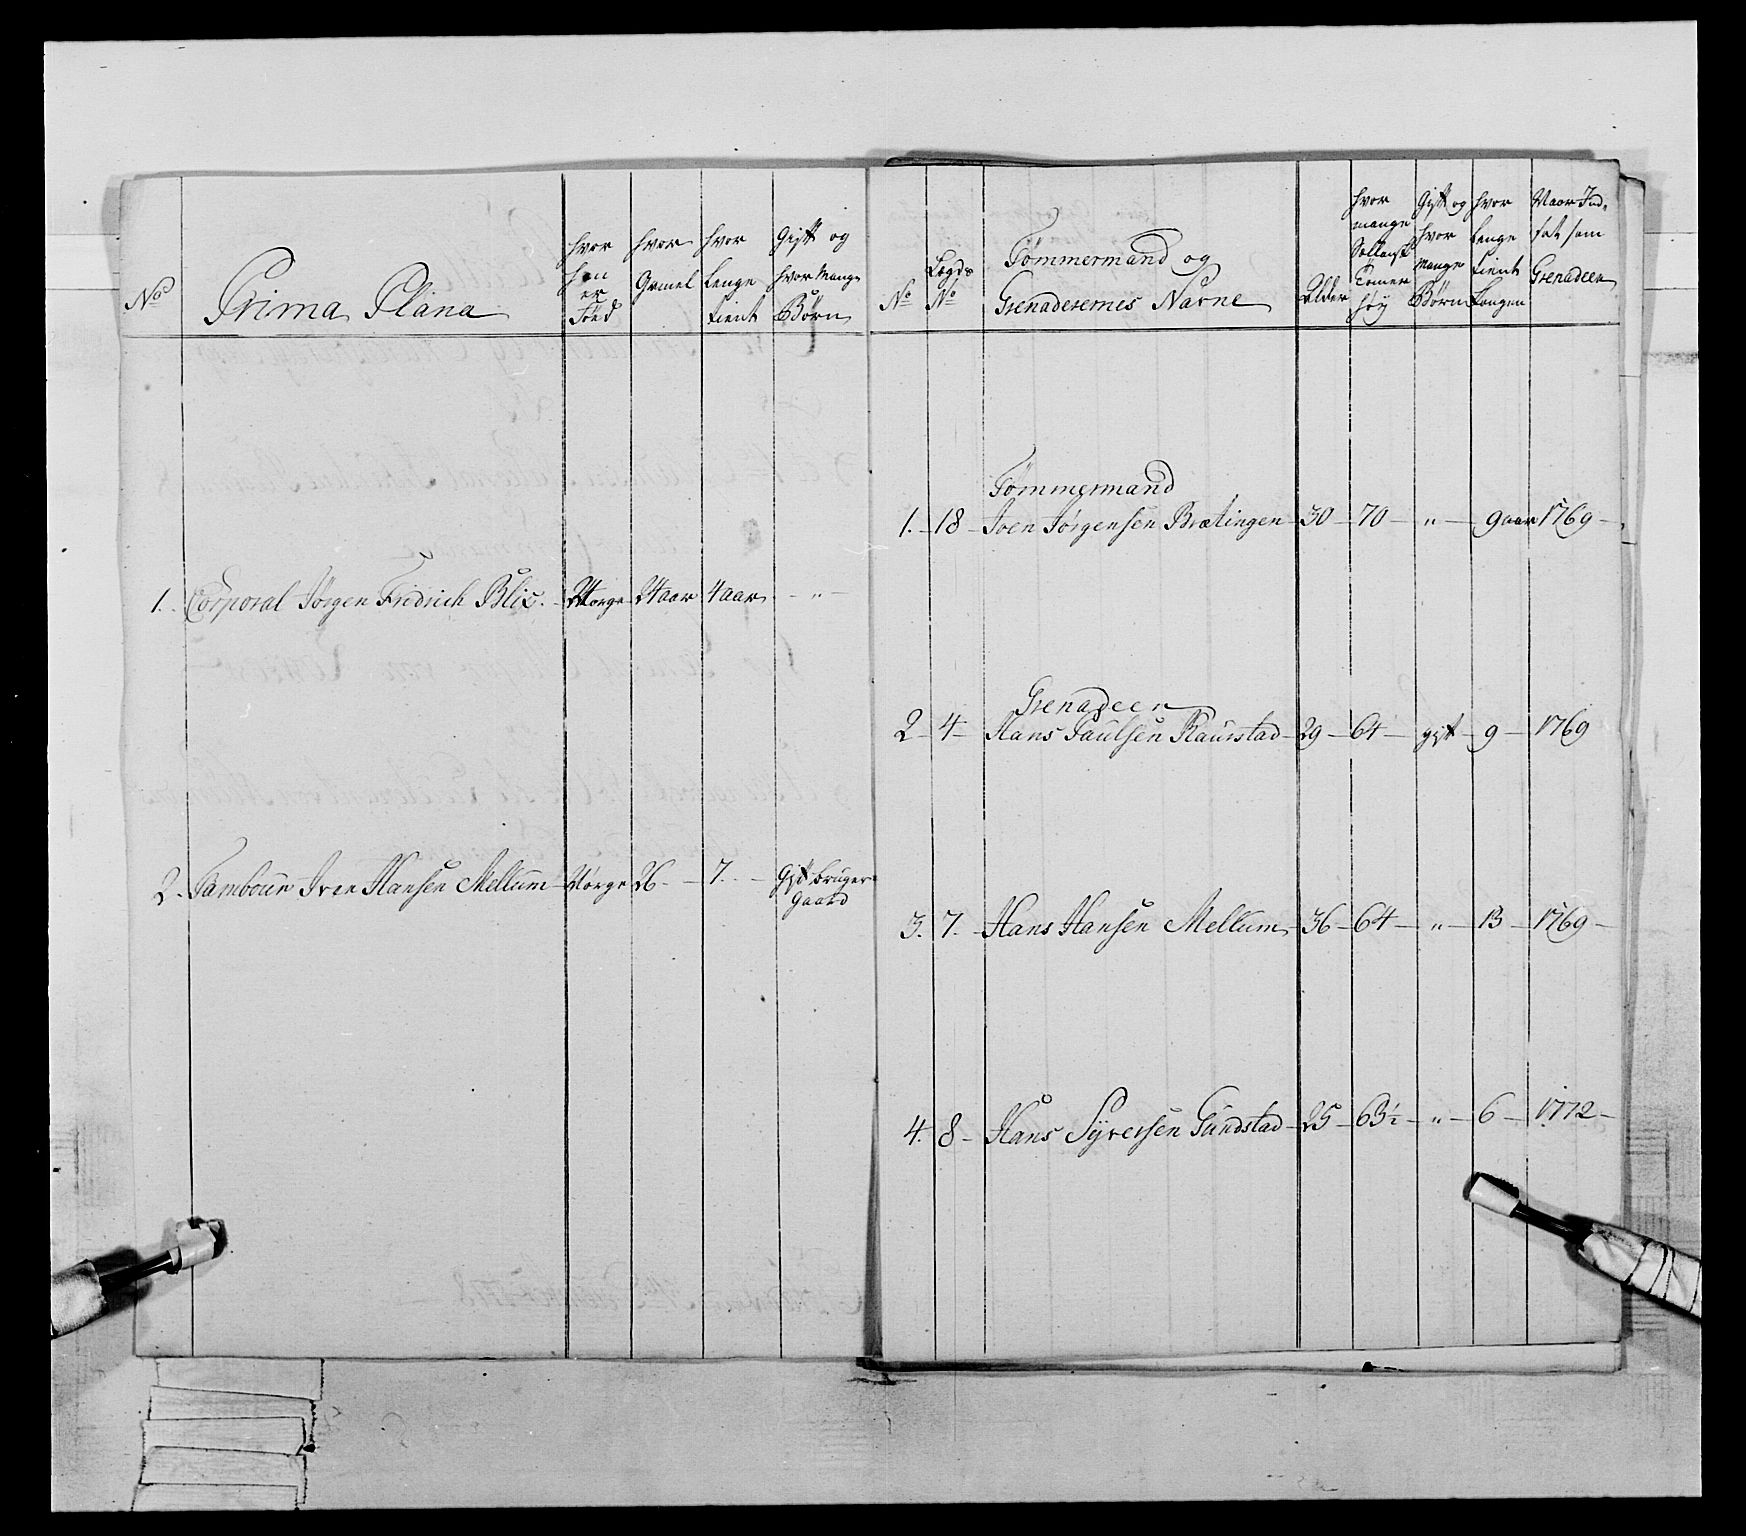 No
Prima Plana
hvor
han
er
Föed
hvor
Gamel
hvor
Lenge
tient
Gift og
hvor mange
Börn
1. Corporal Jörgen Fridrich Blix. Norge 24 aar 4 aar "
2. Tambour Iver Hansen Mellum Norge 26 7. Gift bruger
Gaard
No
Lægds
No
Tömmermand og
Grenaderernes Navne
Alder
hvor
mange
Tomer
höy
Gift og
hvor
Mange
Börn
hvor
Lenge
tient
Kongen
Naar Ind-
sat som
Grenadeer
Tömmermand
1. 18 Joen Jörgensen Brætingen 30 70 " 9 aar 1769
Grenadeer
2 4 Hans Paulsen Raurstad 29 64 gift 9 1769
3. 7. Hans Hansen Mellum 36 64 " 13 1769
4. 8 Hans Syversen Gundstad 25 63½ " 6 1772